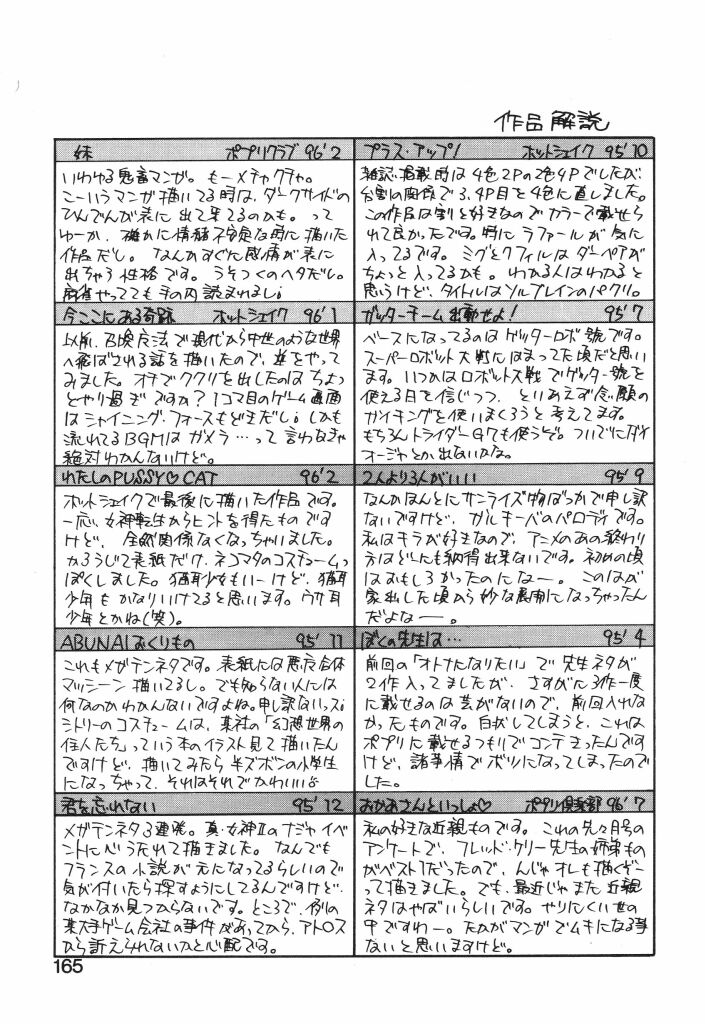 作品解説
妹 ポプリクラブ 96'2
いわゆる鬼畜マンガ。もーメチャクチャ。
こーいうマンガ描いてる時は、ダークサイドの
ひんでんが表に出て来てるのかも。って
ゆーか、確かに情緒不安定な時に描いた
作品だし。なんかすぐに感情が表に
出ちゃう性格です。うそつくのヘタだし。
麻雀やってても手の内読まれまし
今ここにある奇跡 ホットシェイク 96'1
以前、召喚魔法で現代から中世のような世界
へ飛ばされる話を描いたので、逆をやって
みました。オチでククリを出したのはちょっ
とやり過ぎですか?1コマ目のゲーム画面
はシャイニング・フォースもどきだし。しかも
流れてるBGMはガメラ…って言わなきゃ
絶対わかんないけど。
わたしのPUSSY♡CAT 96'2
ホットシェイクで最後に描いた作品です。
一応、女神転生からヒントを得たものです
けど、全然関係なくなっちゃいました。
かろうじて表紙だけ、ネコマタのコスチュームっ
ぽくしました。猫耳少女もいーけど、猫耳
少年もかなりいけてると思います。ウサ耳
少年とかね(笑)。
ABUNAIおくりもの 95'11
これもメガテンネタです。表紙には悪魔合体
マッシーン描いてるし。でも知らない人には
何なのかわかんないですよね。申し訳ないっス。
シトリーのコスチュームは、某社の「幻想世界の
住人たち」っていう本のイラスト見て描いたん
ですけど、描いてみたら半ズボンの小学生
になっちゃって、それはそれでかわいい
君を忘れない 95'12
メガテンネタ3連発。真・女神IIのナジャイベ
ントに心うたれて描きました。なんでも
フランスの小説が元になってるらしいので
気が付いたら探すようにしてるんですけど、
なかなか見つからないです。ところで、例の
某大手ゲーム会社の事件があってから、アトロス
から訴えられないかと心配です。
プラス・アップ! ホットシェイク 95'10
雑誌掲載時は4色2Pの2色4Pでしたが
台割の関係で3、4P目を4色に直しました。
この作品は割と好きなのでカラーで載せら
れて良かったです。時にラファールが気に
入ってるです。ミグとクフィルはダーペアが
ちょっと入ってるかも。わかる人はわかると
思うけど、タイトルはソルブレインのパクリ。
ガッターチーム出動せよ! 95'7
ベースになってるのはゲッターロボ號です。
スーパーロボット大戦にはまってた頃だと思い
ます。いつかはロボット大戦でゲッター號を
使える日を信じつつ、とい​あえず念願の
ガイキングを使いまくろうと考えてます。
もちろんトライダーG7も使うぞ。ついでにダイ
オージャとか出ないかな。
2人より3人がいい 95'9
なんかほんとにサンライズ物ばっかで申し訳
ないですけど、ガルキーバのパロディです。
私はキラが好きなので、アニメのあの終わり
方はどーにも納得出来ないです。初めの頃
はおもしろかったのになー。このはが
家出した頃から妙な展開になっちゃったん
だよなー。
ぼくの先生は… 95'4
前回の「オトナになりたい」で先生ネタが
2作入ってましたが、さすがに3作一度
に載せるのは芸がないので、前回入れな
かったものです。白状してしまうと、これは
ポプリに載せるつもりでコンテきったんです
けど、諸事情でボツになってしまったので
した。
おかあさんといっしょ♡ ポプリ倶楽部 96'7
私の好きな近親ものです。これの先々月号の
アンケートで、フレッド・ケリー先生の姉弟もの
がベスト1だったので、んじゃオレも描くぞー
って描きました。でも、最近じゃまた近親
ネタはやばいらしいです。やりにくい世の
中ですわー。たかがマンガでムキになる事
ないと思いますけど。
165